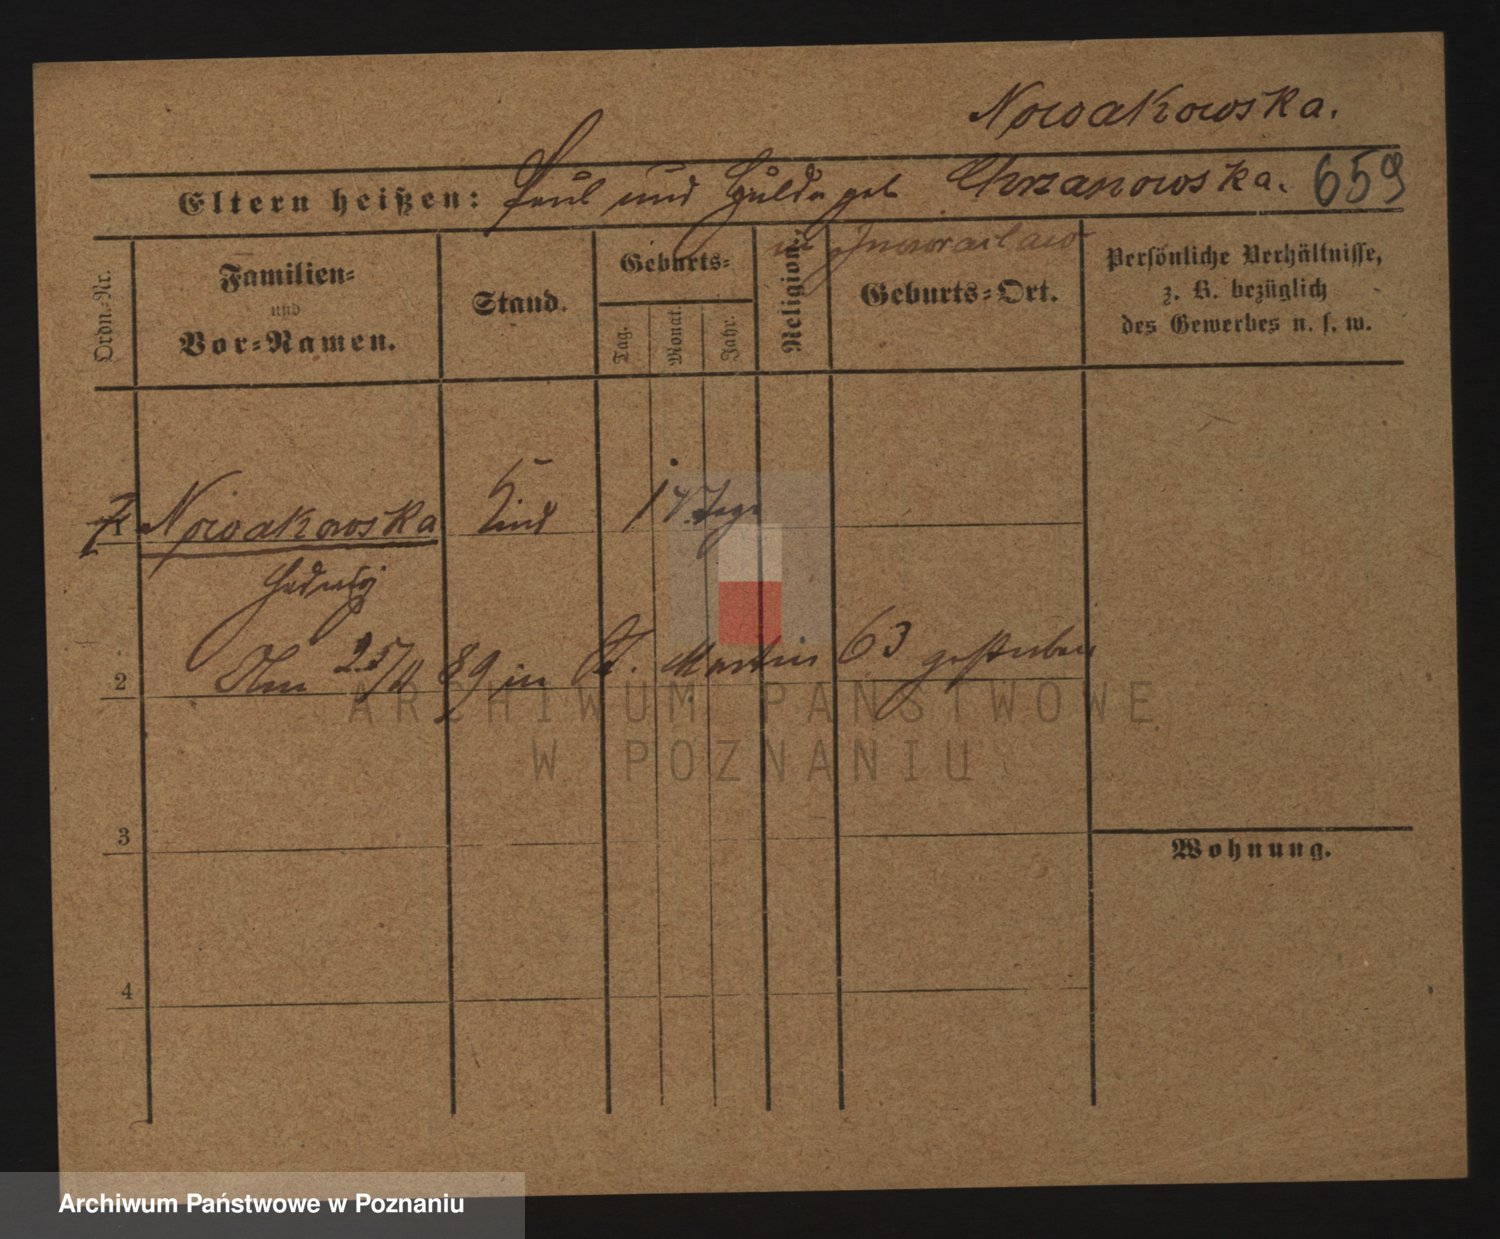 Nowakowska.
Eltern heißen: Paul und Hulda geb Chrzanowska. 659
in Inowraclaw
Ordn.-Nr.
Familien=
und
Vor=Namen.
Stand.
Geburts=
Tag.
Monat.
Jahr.
Religion.
Geburts=Ort.
Persönliche Verhältnisse,
z. B. bezüglich
des Gewerbes u. s. w.
1 Nowakowska Kind 14 Tage
Hedwig
2 Am 25/4 89 in St. Martin 63 gestorben
ARCHIWUM PAŃSTWOWE
W POZNANIU
3
Wohnung.
4
Archiwum Państwowe w Poznaniu